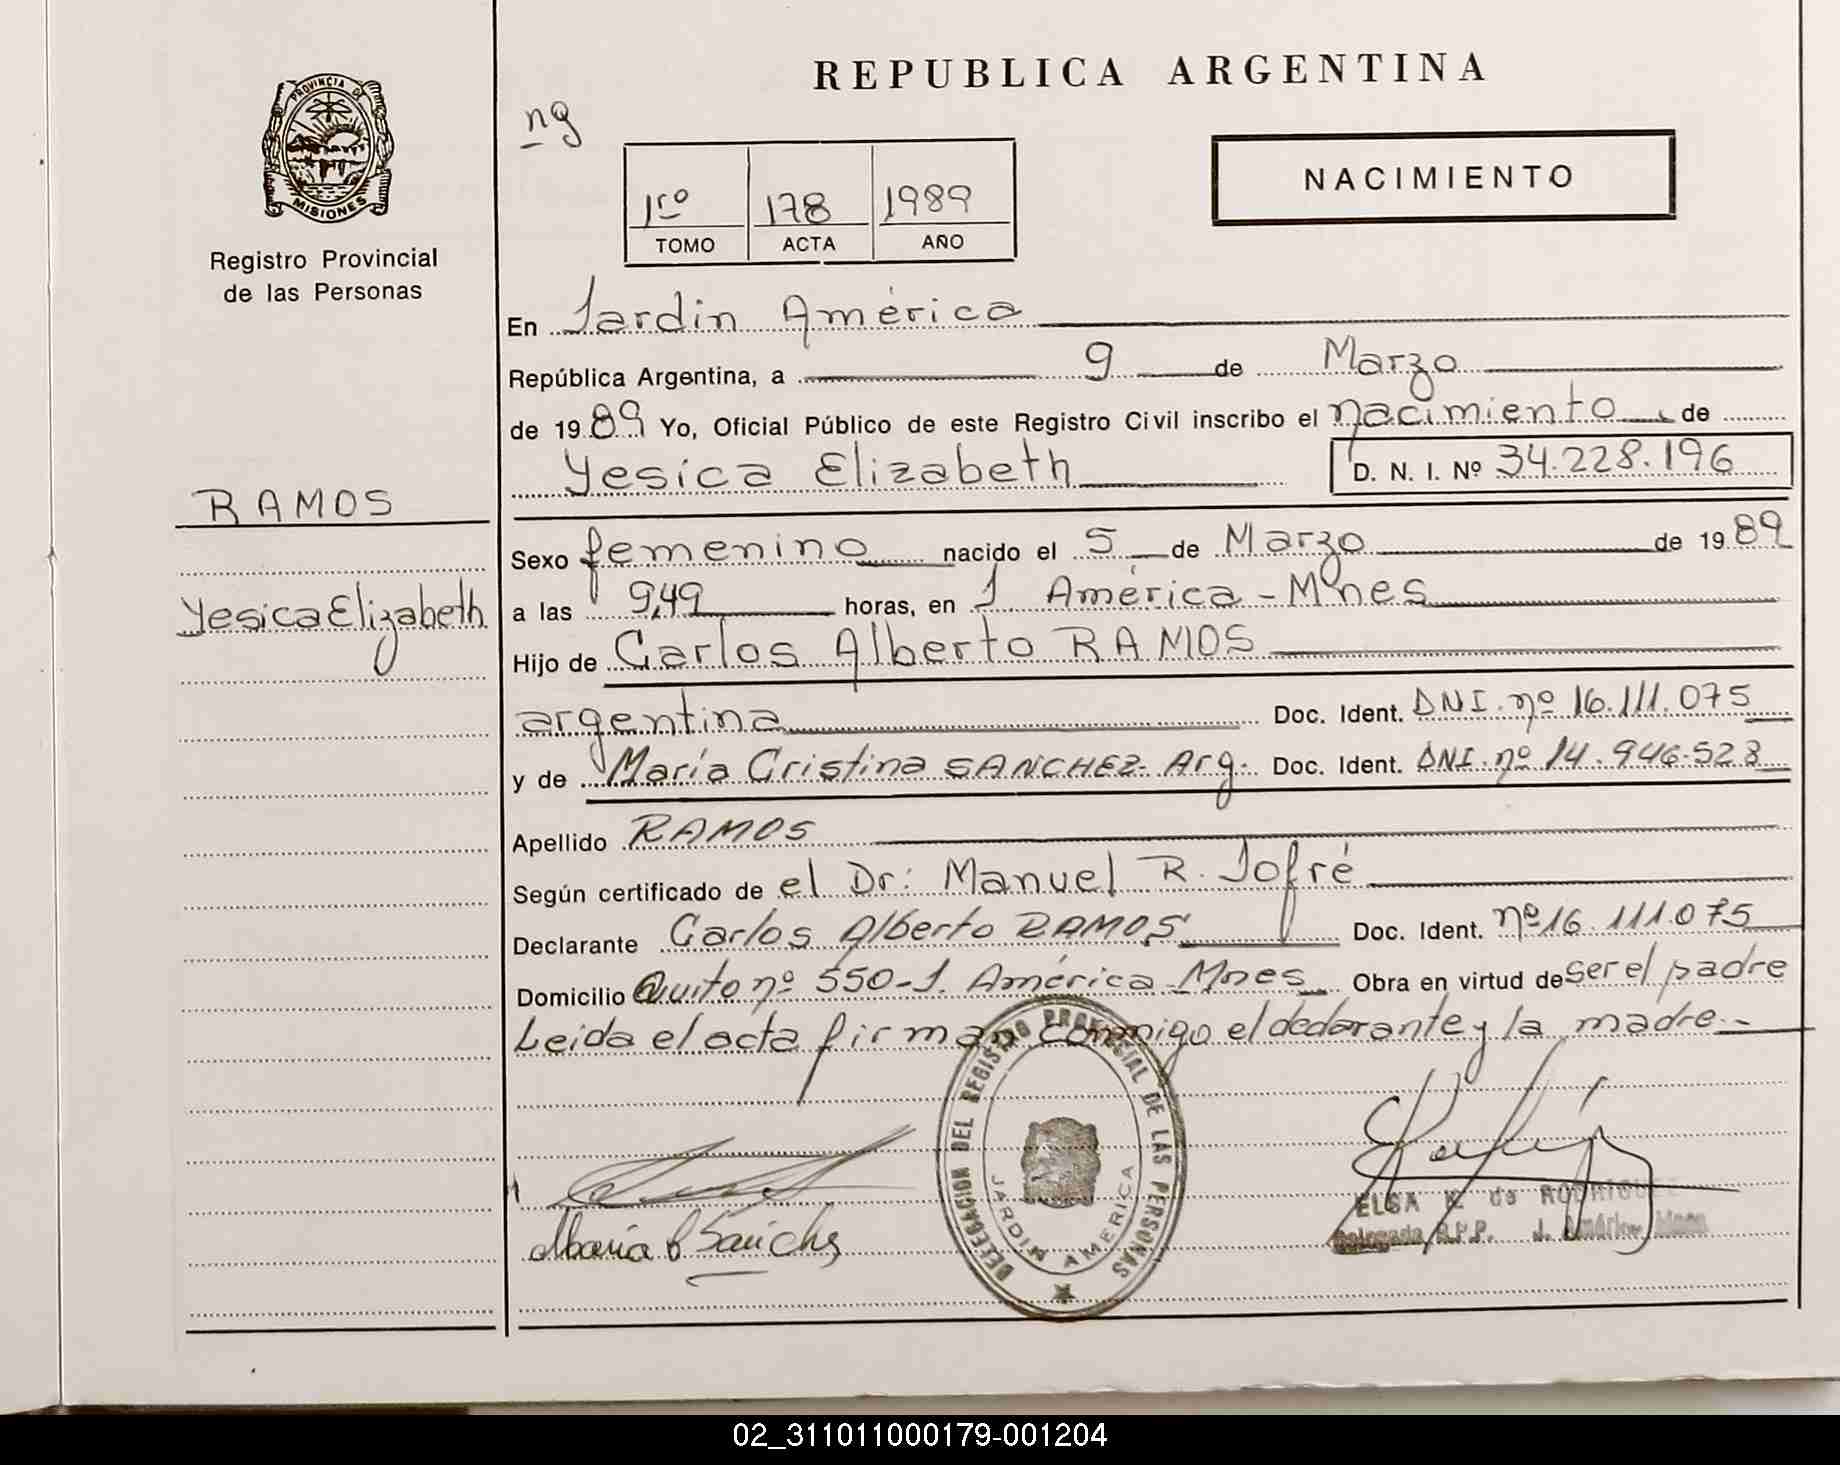 REPUBLICA ARGENTINA
PROVINCIA DE
MISIONES
Registro Provincial
de las Personas
ng
1ro 178 1989
TOMO ACTA AÑO
NACIMIENTO
En Jardin América
República Argentina, a 9 de Marzo
de 1989 Yo, Oficial Público de este Registro Civil inscribo el nacimiento de
Yesica Elizabeth D. N. I. Nº 34.228.196
RAMOS
Yesica Elizabeth
Sexo femenino nacido el 5 de Marzo de 1989
a las 9,49 horas, en J. América - Mnes
Hijo de Carlos Alberto RAMOS
argentina Doc. Ident. DNI. nº 16.111.075
y de María Cristina SANCHEZ- Arg. Doc. Ident. DNI. nº 14.946.528
Apellido RAMOS
Según certificado de el Dr: Manuel R. Jofré
Declarante Carlos Alberto RAMOS Doc. Ident. nº 16.111.075
Domicilio Quito nº 550-J. América Mnes Obra en virtud de ser el padre
Leida el acta firman conmigo el declarante y la madre.-
DELEGACION DEL REGISTRO PROVINCIAL DE LAS PERSONAS
JARDIN AMERICA
Maria C Sanchez
ELSA K de RODRIGUEZ
Delegada R.P.P. J. América Mnes
02_311011000179-001204